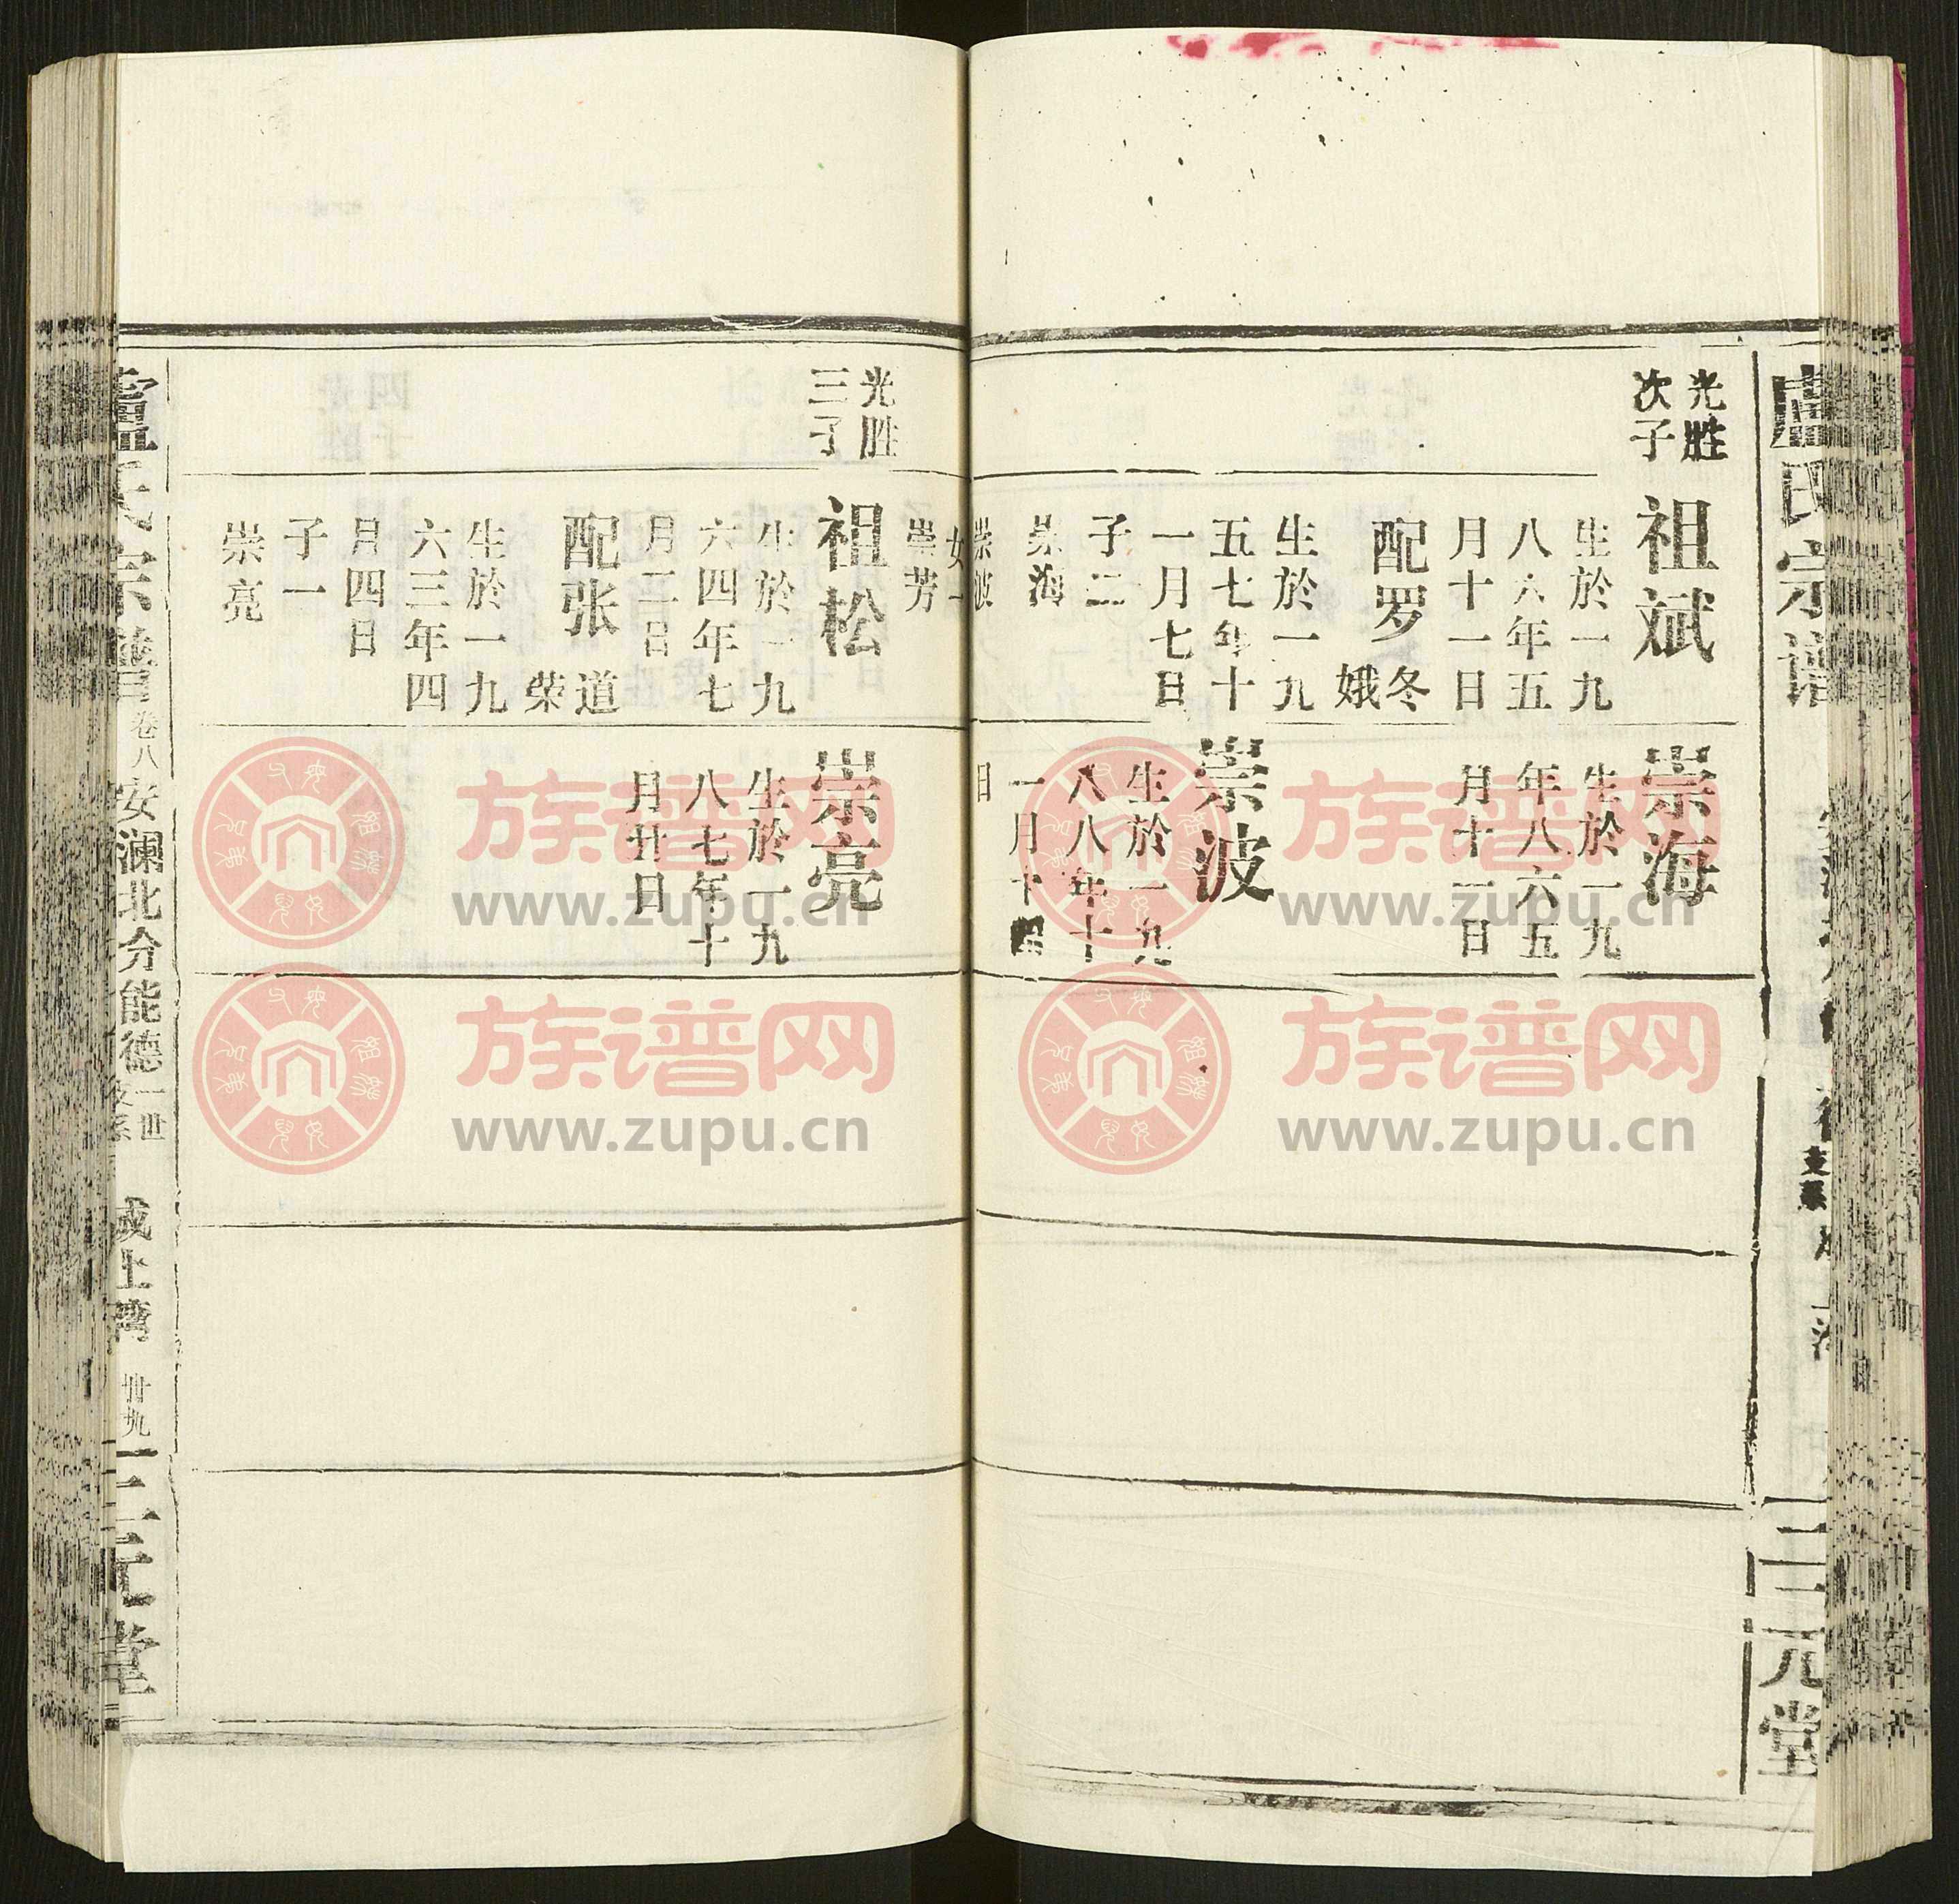 盧氏宗谱
三元堂
光胜
次子
祖斌
生於一九
八六年五
月十一日
配罗
冬
娥
生於一九
五七年十
一月七日
子二
崇海
崇波
女一
崇芳
崇海
生於一九
年八六五
月十一日
崇波
生於一九
八八年十
一月十
日
光胜
三子
祖松
生於一九
六四年七
月二日
配张
道
荣
生於一九
六三年四
月四日
子一
崇亮
崇亮
生於一九
八七年十
月廿日
盧氏宗譜
卷八
安澜北分能德
一世
支系
上湾
卅九
三元堂
族谱网
www.zupu.cn
族谱网
www.zupu.cn
族谱网
www.zupu.cn
族谱网
www.zupu.cn